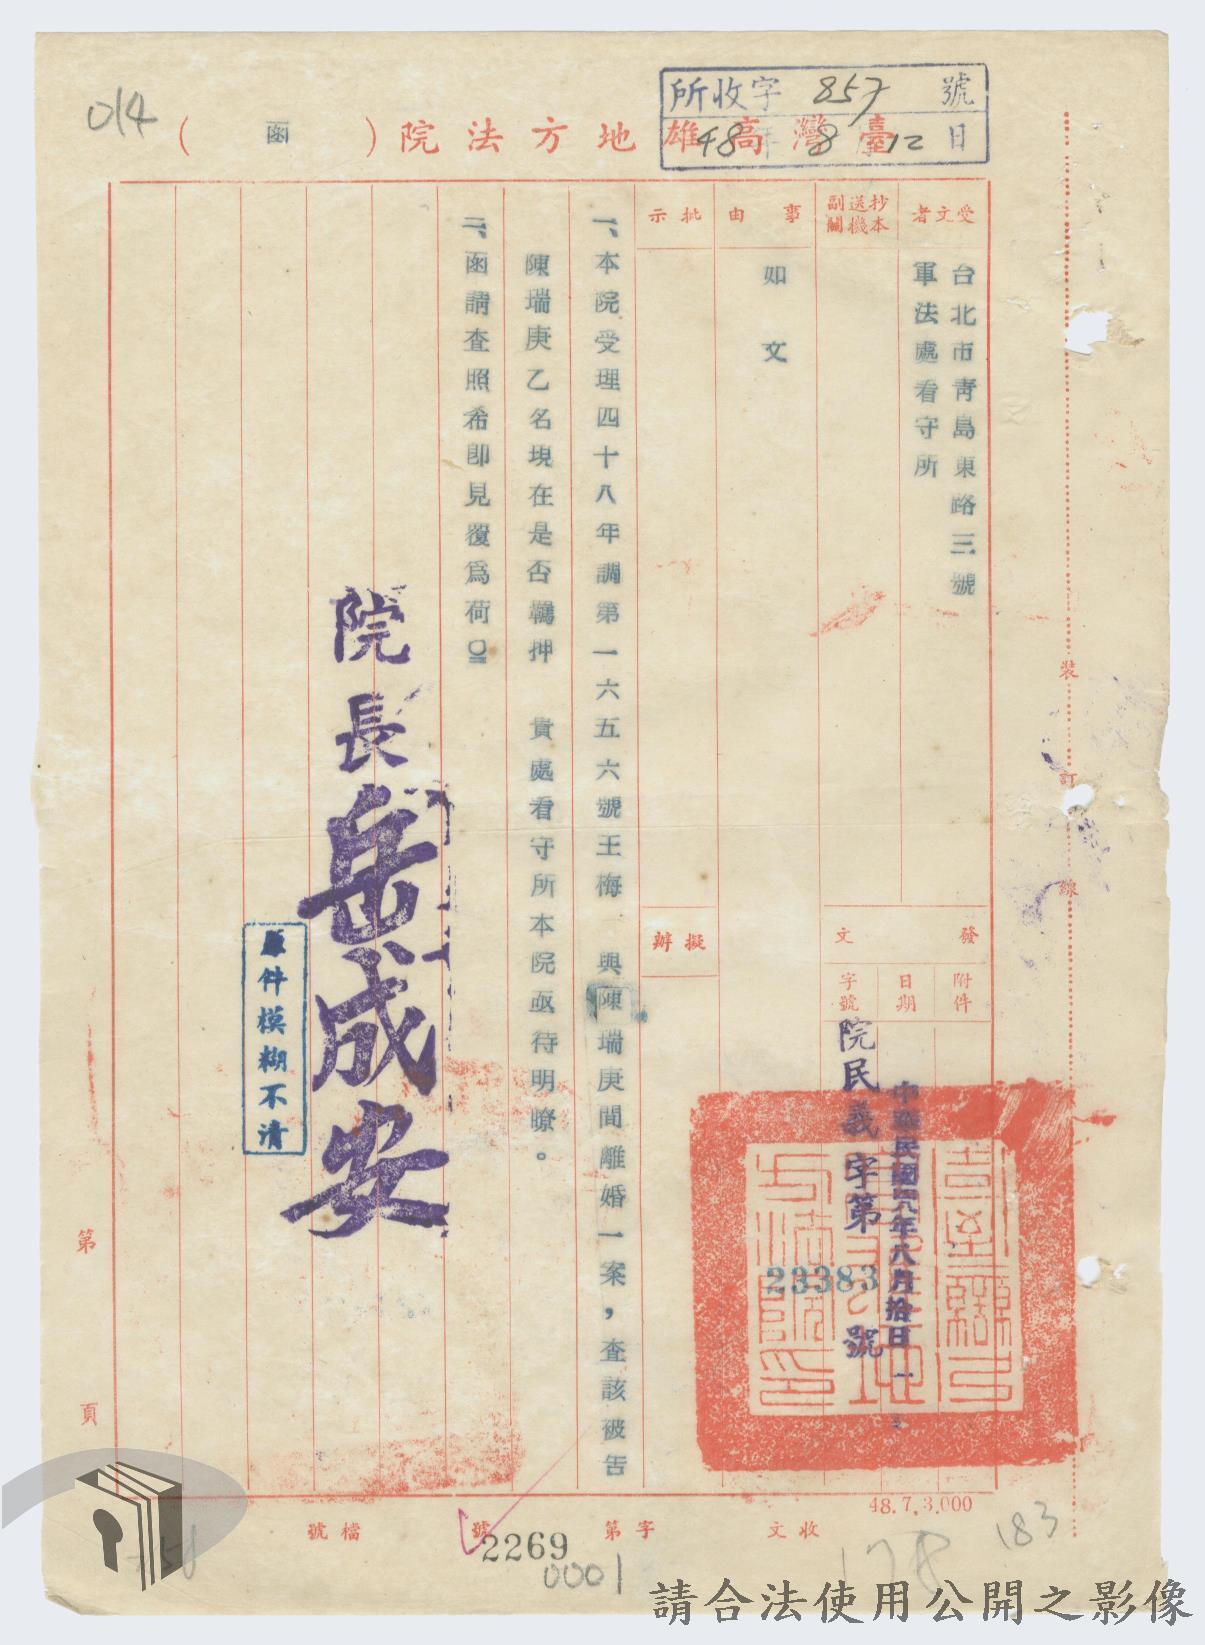 014
所收字 857 號
48年 8 12日
臺灣高雄地方法院(函)
受文者
台北市靑島東路三號
軍法處看守所
抄本
送機
副關
事由
如文
批示
擬辦
發文
附件
日期
中華民國四八年八月拾一日
字號
院民義字第23383號
一、本院受理四十八年調第一六五六號王梅 與陳瑞庚間離婚一案，查該被告
陳瑞庚乙名現在是否羈押 貴處看守所本院亟待明瞭。
二、函請查照希卽見覆爲荷
院長岳成安
原件模糊不清
裝
訂
線
第
頁
48.7.3.000
收文
字第
號
2269
檔號
0001
178
183
請合法使用公開之影像